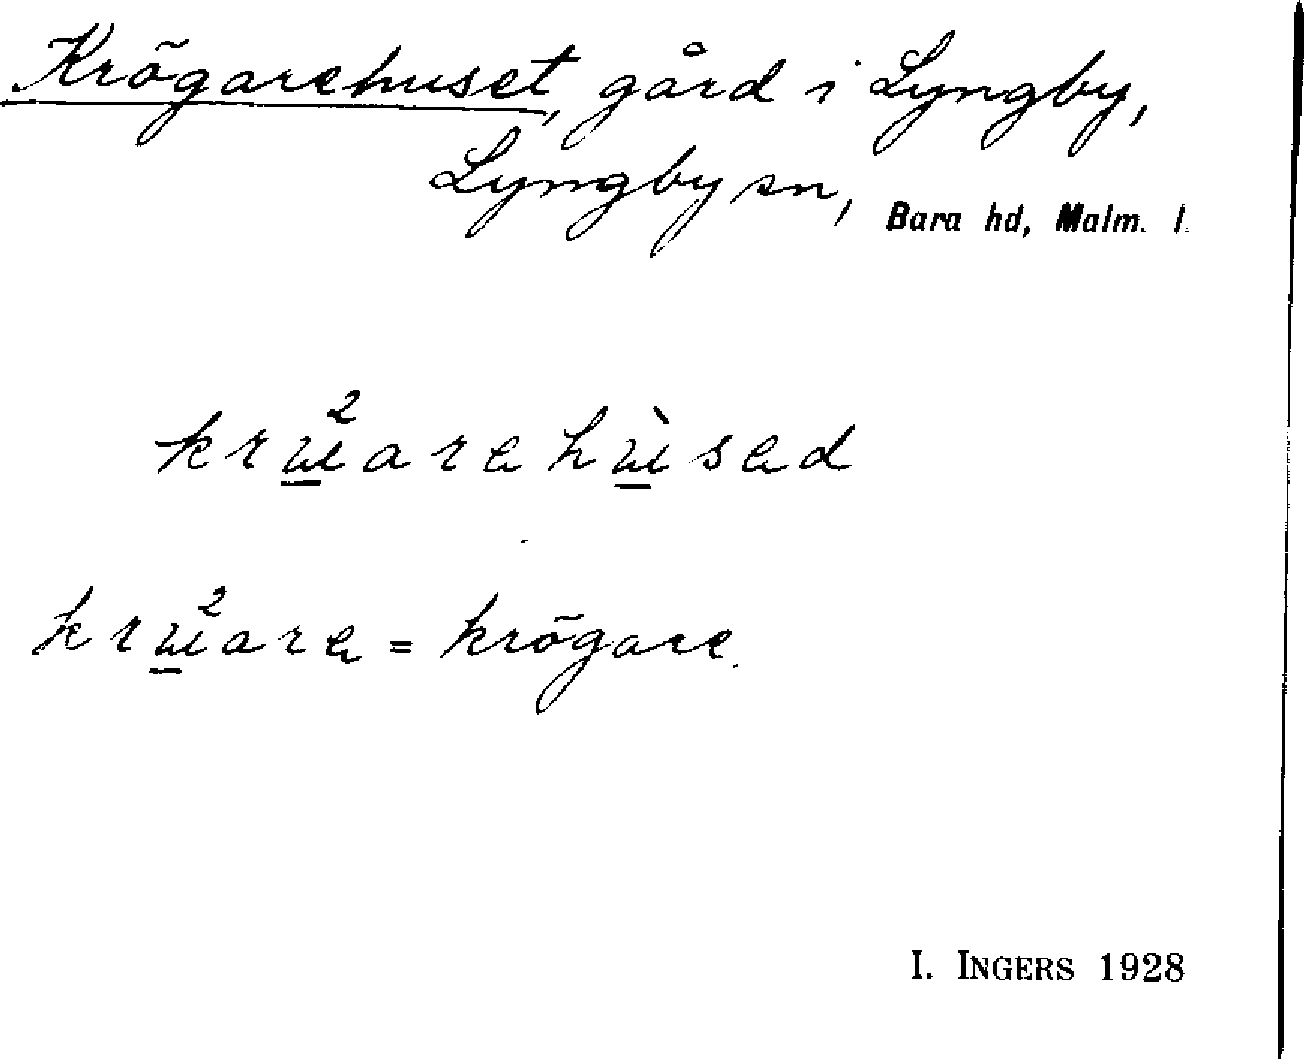 Krögarehuset, gård i Lyngby,
Lyngby sn, Bara hd, Malm. l.
krɯ²arehɯ̀sed
krɯ²are = krögare.
I. INGERS 1928